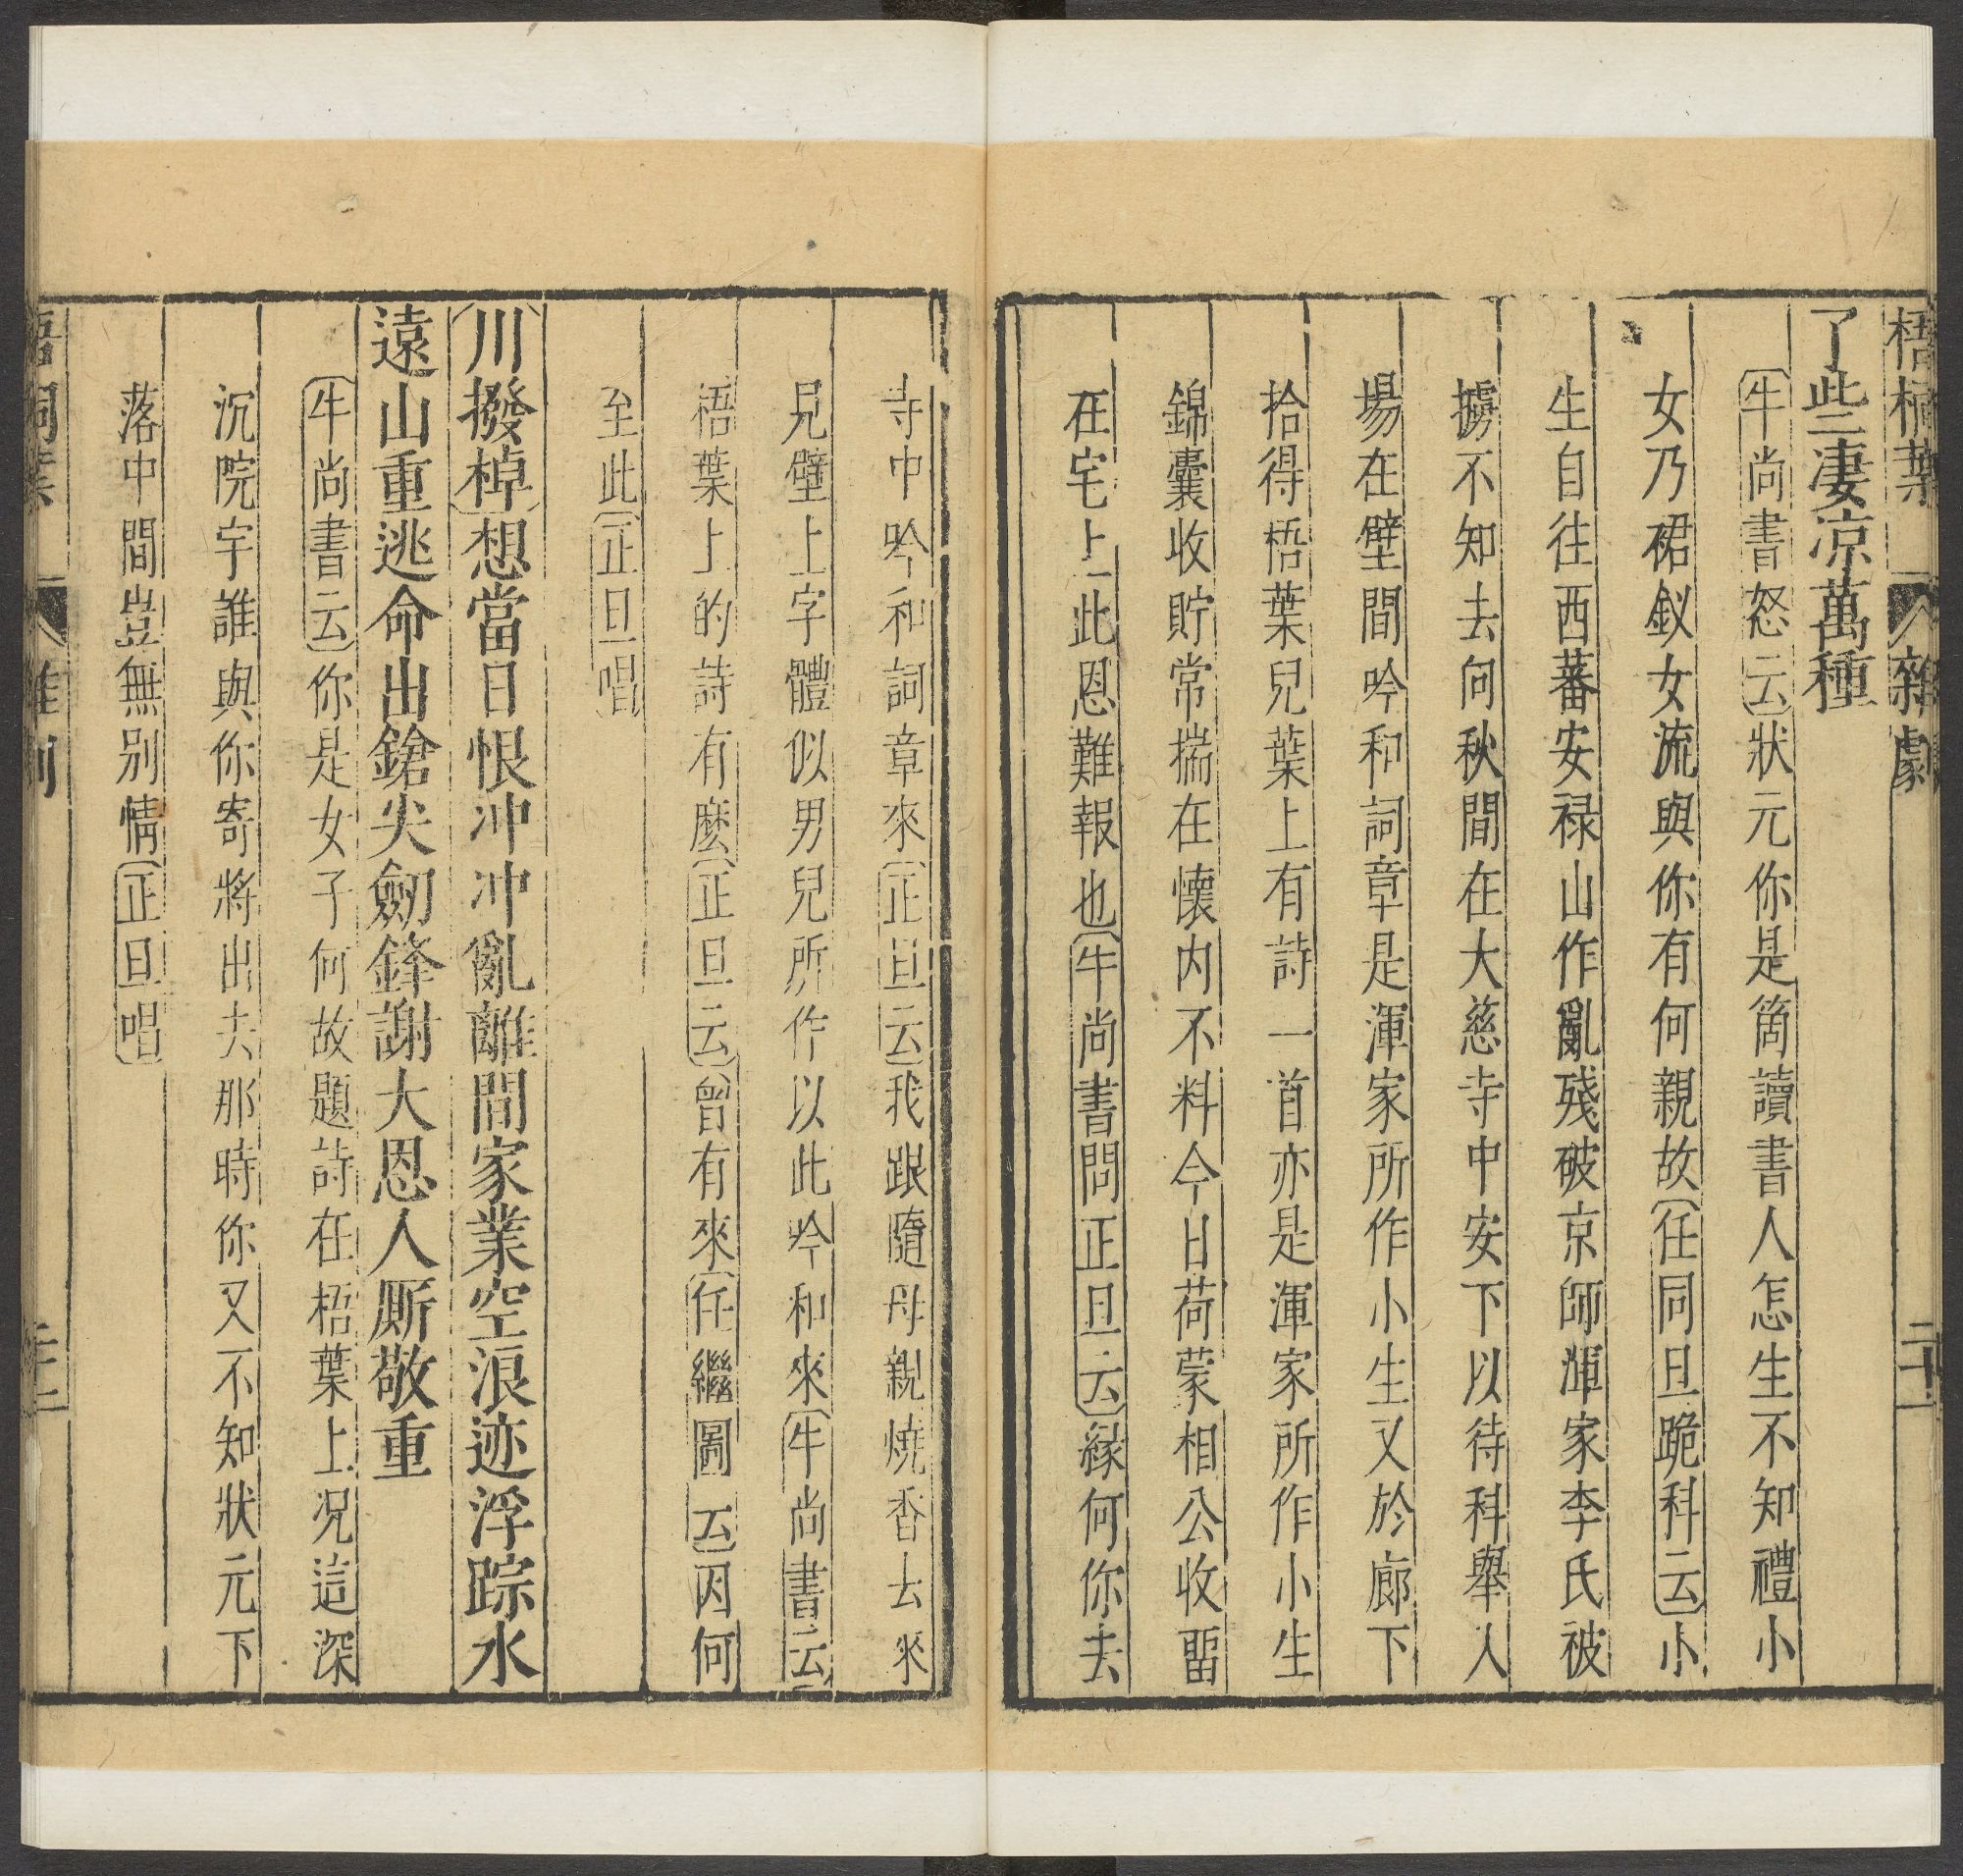 梧桐葉 雜劇 二十一
了些凄凉萬種
牛尚書怒云狀元你是箇讀書人怎生不知禮小
女乃裙釵女流與你有何親故任同旦跪科云小
生自往西蕃安禄山作亂殘破京師渾家李氏被
擄不知去向秋間在大慈寺中安下以待科舉人
場在壁間吟和詞章是渾家所作小生又於廊下
拾得梧葉兒葉上有詩一首亦是渾家所作小生
錦囊收貯常揣在懷内不料今日荷蒙相公收畱
在宅上此恩難報也牛尚書問正旦云緣何你去
寺中吟和詞章來正旦云我跟隨母親燒香去來
見壁上字體似男兒所作以此吟和來牛尚書云
梧葉上的詩有麽正旦云曾有來任繼圖云因何
至此正旦唱
川撥棹想當日恨冲冲亂離間家業空浪迹浮踪水
遠山重逃命出鎗尖劒鋒謝大恩人厮敬重
牛尚書云你是女子何故題詩在梧葉上况這深
沉院宇誰與你寄將出去那時你又不知狀元下
落中間豈無别情正旦唱
梧桐葉